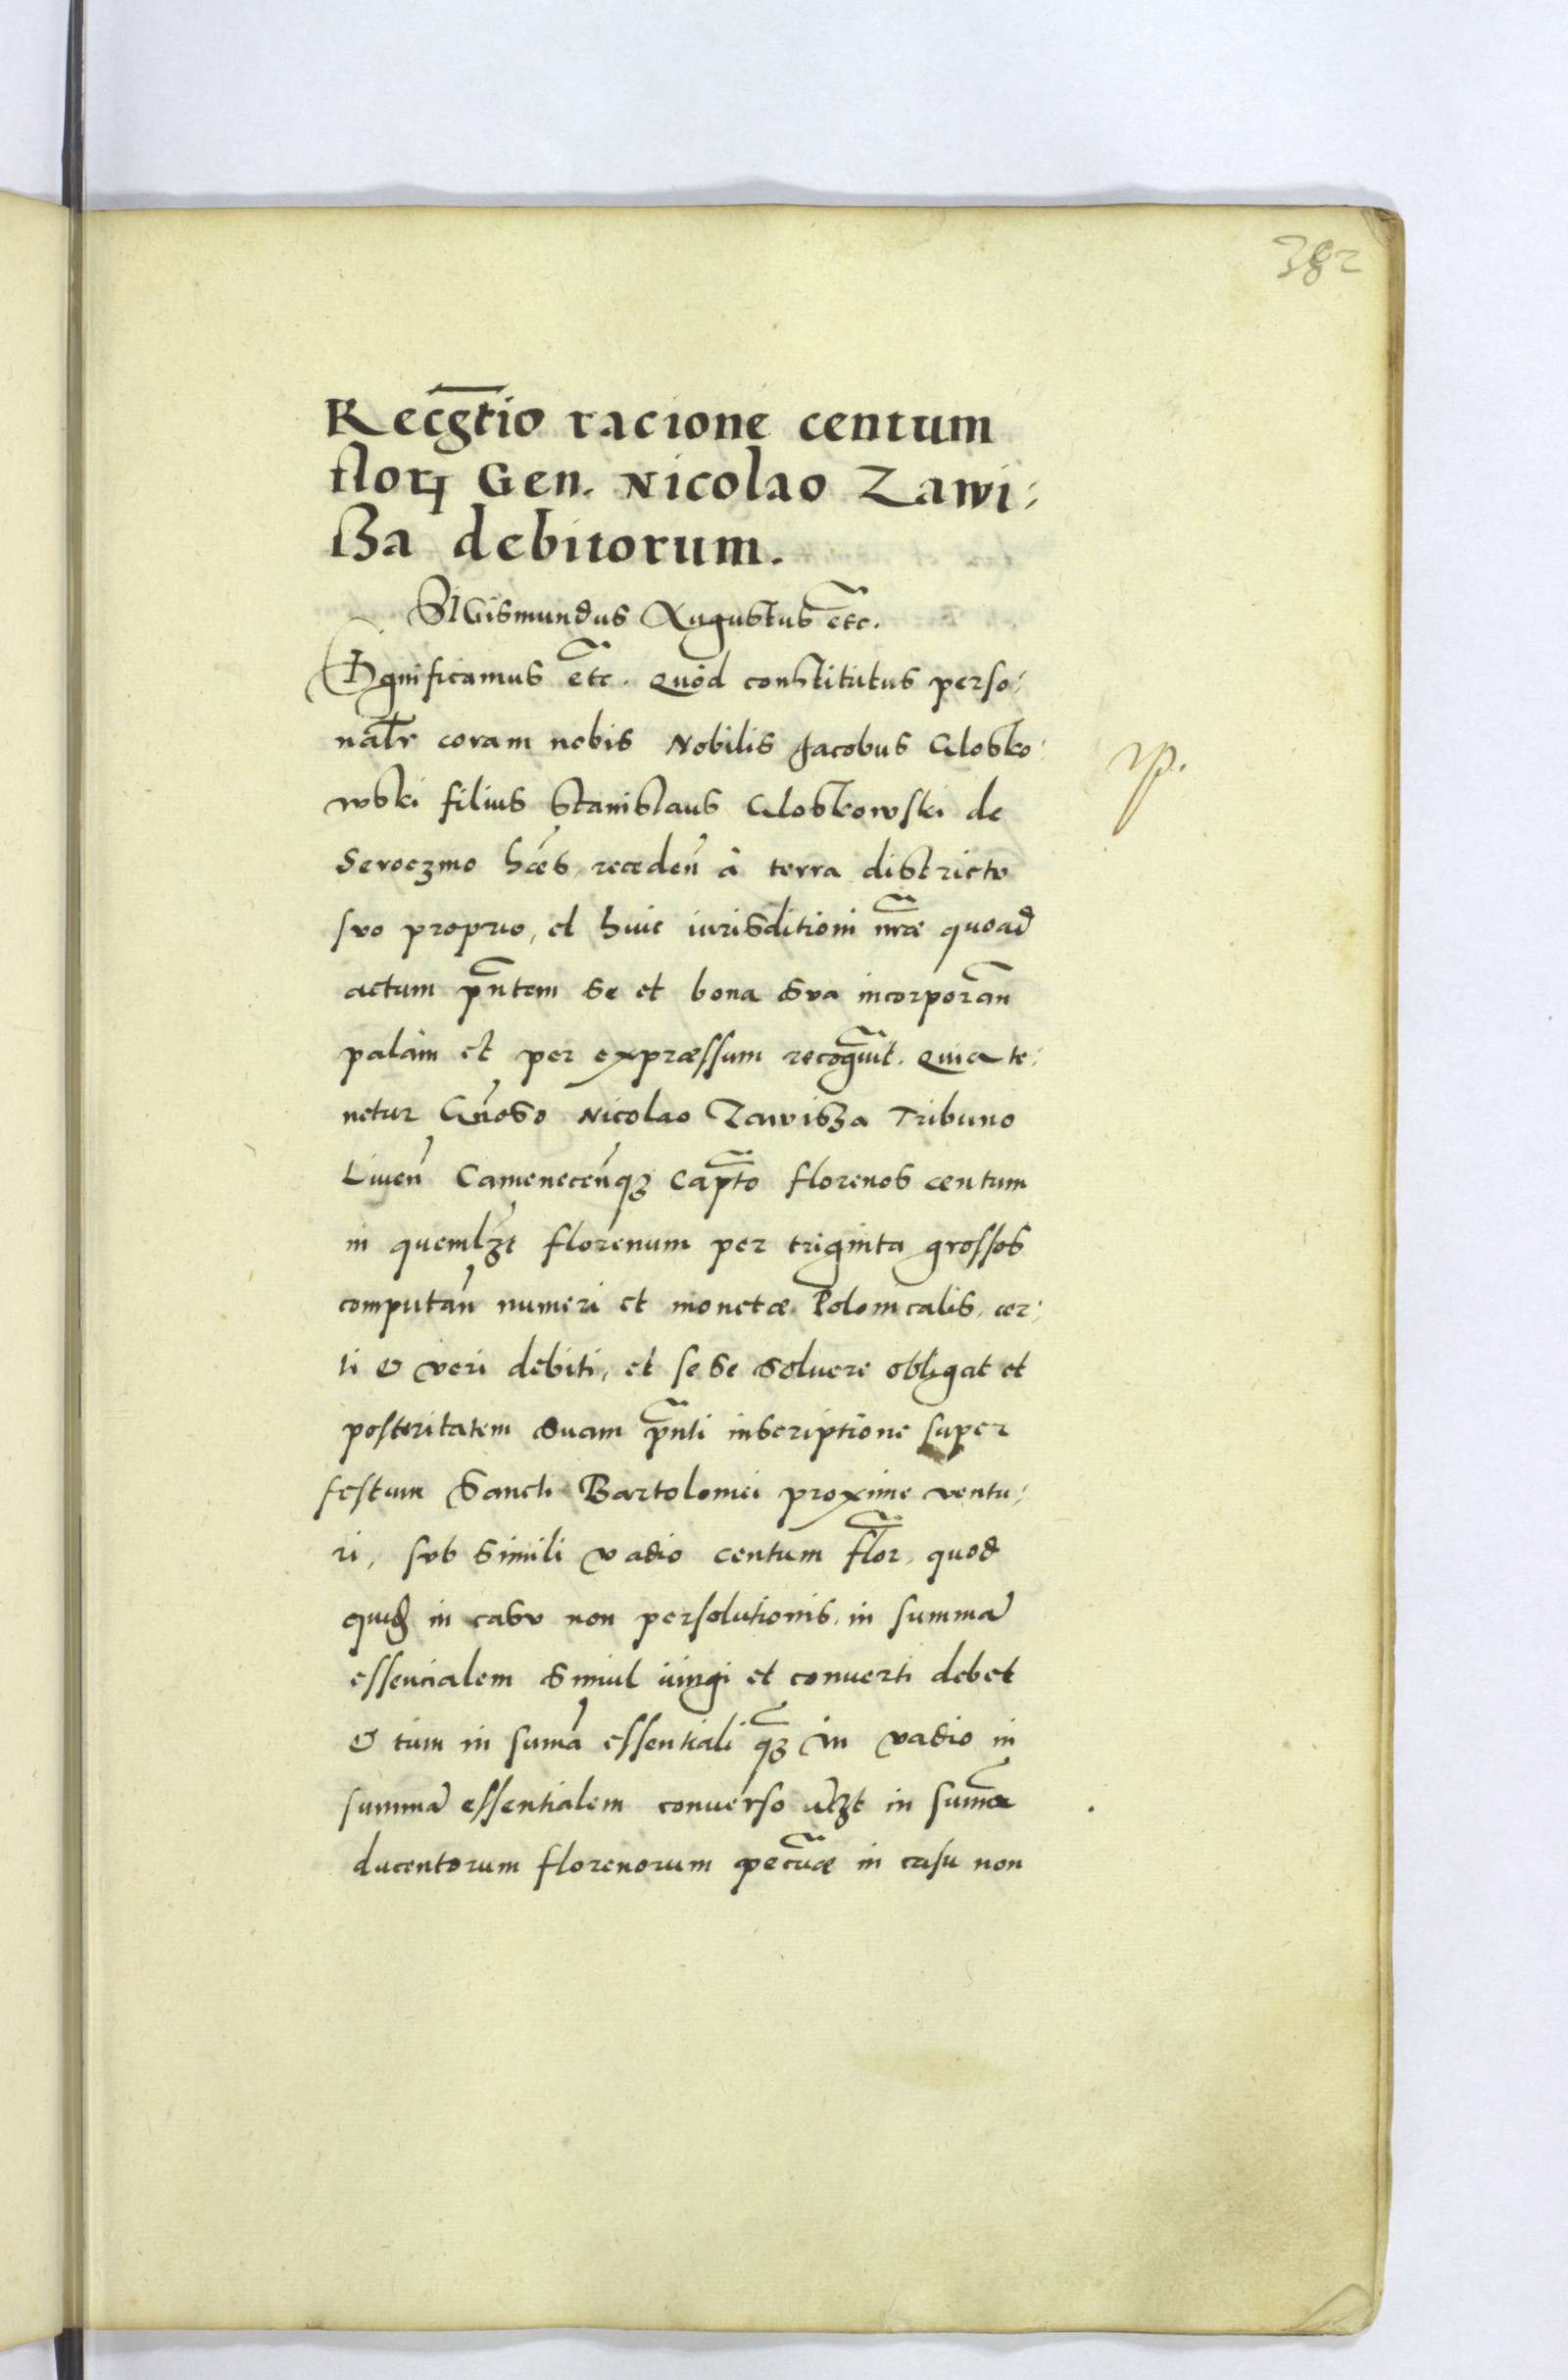 382
Recgtio racione centum
florꝝ Gen. Nicolao Zawi:
sza debitorum.
SIGismundus Augustus etc.
SIgnificamus etc. quod constitutus perso:
nalr coram nobis Nobilis Jacobus Glosko:
wski filius Stanislaus Gloskowski de
Seroczmo hæs, receden à terra districto
suo proprio, et huic iurisditioni nræ quoad
actum pntem se et bona sua incorporan
palàm et per expræssum recogvit. Quia te:
netur Gnoso Nicolao Zawisza Tribuno
Liuen Camenecenqꝫ Capto florenos centum
in quemlꝫt florenum per triginta grossos
computan numeri et monetæ Polonicalis, cer:
ti & veri debiti, et se se soluere obligat et
posteritatem suam pnti inscriptione super
festum Sancti Bartolomei proxime ventu:
ri, sub simili vadio centum flor, quod
quid in casu non persolutionis, in summa
essencialem simul iungi et conuerti debet
& tum in suma essentiali qꝫ in vadio in
summa essentialem conuerso vꝫt in suma
ducentorum florenorum pecuæ in casu non